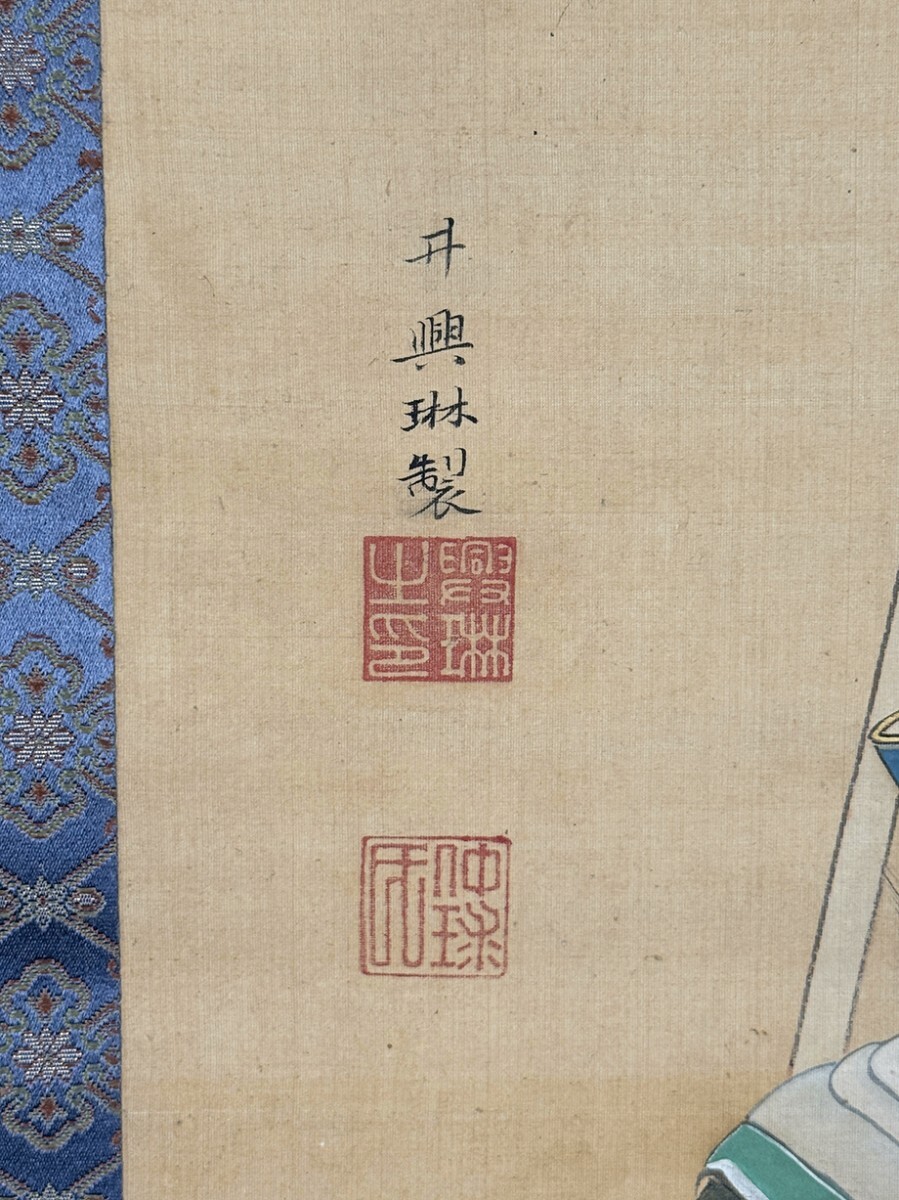 井興琳製
興琳之印
仲球氏